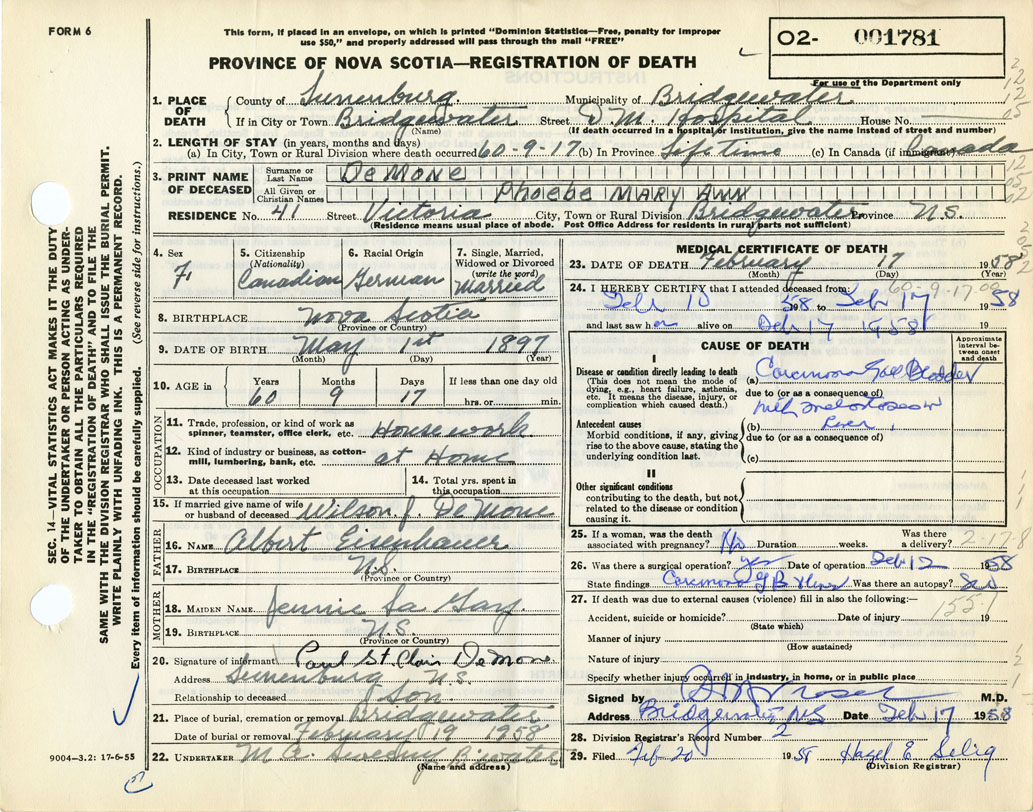 FORM 6
This form, if placed in an envelope, on which is printed "Dominion Statistics—Free, penalty for improper
use $50," and properly addressed will pass through the mail "FREE"
02- 001781
For use of the Department only
PROVINCE OF NOVA SCOTIA—REGISTRATION OF DEATH
SEC. 14—VITAL STATISTICS ACT MAKES IT THE DUTY
OF THE UNDERTAKER OR PERSON ACTING AS UNDER-
TAKER TO OBTAIN ALL THE PARTICULARS REQUIRED
IN THE "REGISTRATION OF DEATH" AND TO FILE THE
SAME WITH THE DIVISION REGISTRAR WHO SHALL ISSUE THE BURIAL PERMIT.
WRITE PLAINLY WITH UNFADING INK. THIS IS A PERMANENT RECORD.
Every item of information should be carefully supplied. (See reverse side for instructions.)
1. PLACE OF DEATH County of Lunenburg Municipality of Bridgewater
If in City or Town Bridgewater Street D. M. Hospital House No.
(Name) (If death occurred in a hospital or institution, give the name instead of street and number)
2. LENGTH OF STAY (in years, months and days)
(a) In City, Town or Rural Division where death occurred 60-9-17 (b) In Province Lifetime (c) In Canada (if immigrant) Canada
3. PRINT NAME OF DECEASED Surname or Last Name DeMone
All Given or Christian Names Phoebe MARY ANN
RESIDENCE No. 41 Street Victoria City, Town or Rural Division Bridgewater Province N.S.
(Residence means usual place of abode. Post Office Address for residents in rural parts not sufficient)
4. Sex F.
5. Citizenship (Nationality) Canadian
6. Racial Origin German
7. Single, Married, Widowed or Divorced (write the word) Married
8. BIRTHPLACE Nova Scotia
(Province or Country)
9. DATE OF BIRTH May 1st 1897
(Month) (Day) (Year)
10. AGE in Years Months Days If less than one day old
60 9 17 hrs. or min.
OCCUPATION
11. Trade, profession, or kind of work as spinner, teamster, office clerk, etc. Housework
12. Kind of industry or business, as cotton-mill, lumbering, bank, etc. at Home
13. Date deceased last worked at this occupation
14. Total yrs. spent in this occupation
15. If married give name of wife or husband of deceased Wilson J. DeMone
FATHER
16. NAME Albert Eisenhauer
17. BIRTHPLACE N.S.
(Province or Country)
MOTHER
18. MAIDEN NAME Jennie La Gay
19. BIRTHPLACE N.S.
(Province or Country)
20. Signature of informant Paul St Clair DeMone
Address Lunenburg N.S.
Relationship to deceased Son
21. Place of burial, cremation or removal Bridgewater
Date of burial or removal February 19 1958
22. UNDERTAKER M. G. Sweeny Bridgewater
(Name and address)
9004—3.2: 17-6-55
MEDICAL CERTIFICATE OF DEATH
23. DATE OF DEATH February 17 1958
(Month) (Day) (Year)
60-9-17.00
24. I HEREBY CERTIFY that I attended deceased from:
Feb 10 58 to Feb 17 1958
and last saw her alive on Feb 17 1958 19
CAUSE OF DEATH
Approximate interval between onset and death
I
Disease or condition directly leading to death
(This does not mean the mode of dying, e.g., heart failure, asthenia, etc. It means the disease, injury, or complication which caused death.)
(a) Carcinoma Gall Bladder
due to (or as a consequence of)
with metastases in
(b) Liver
due to (or as a consequence of)
(c)
Antecedent causes
Morbid conditions, if any, giving rise to the above cause, stating the underlying condition last.
II
Other significant conditions
contributing to the death, but not related to the disease or condition causing it.
25. If a woman, was the death associated with pregnancy? No Duration weeks. Was there a delivery?
2-17-8
26. Was there a surgical operation? yes Date of operation Feb 12 1958
State findings Carcinoma G B & liver Was there an autopsy?
27. If death was due to external causes (violence) fill in also the following:—
155.1
Accident, suicide or homicide? Date of injury 19
(State which)
Manner of injury
(How sustained)
Nature of injury
Specify whether injury occurred in industry, in home, or in public place
Signed by M.D.
Address Bridgewater, NS Date Feb 17 1958
28. Division Registrar's Record Number 2
29. Filed Feb 20 1958 Hazel E Selig
(Division Registrar)